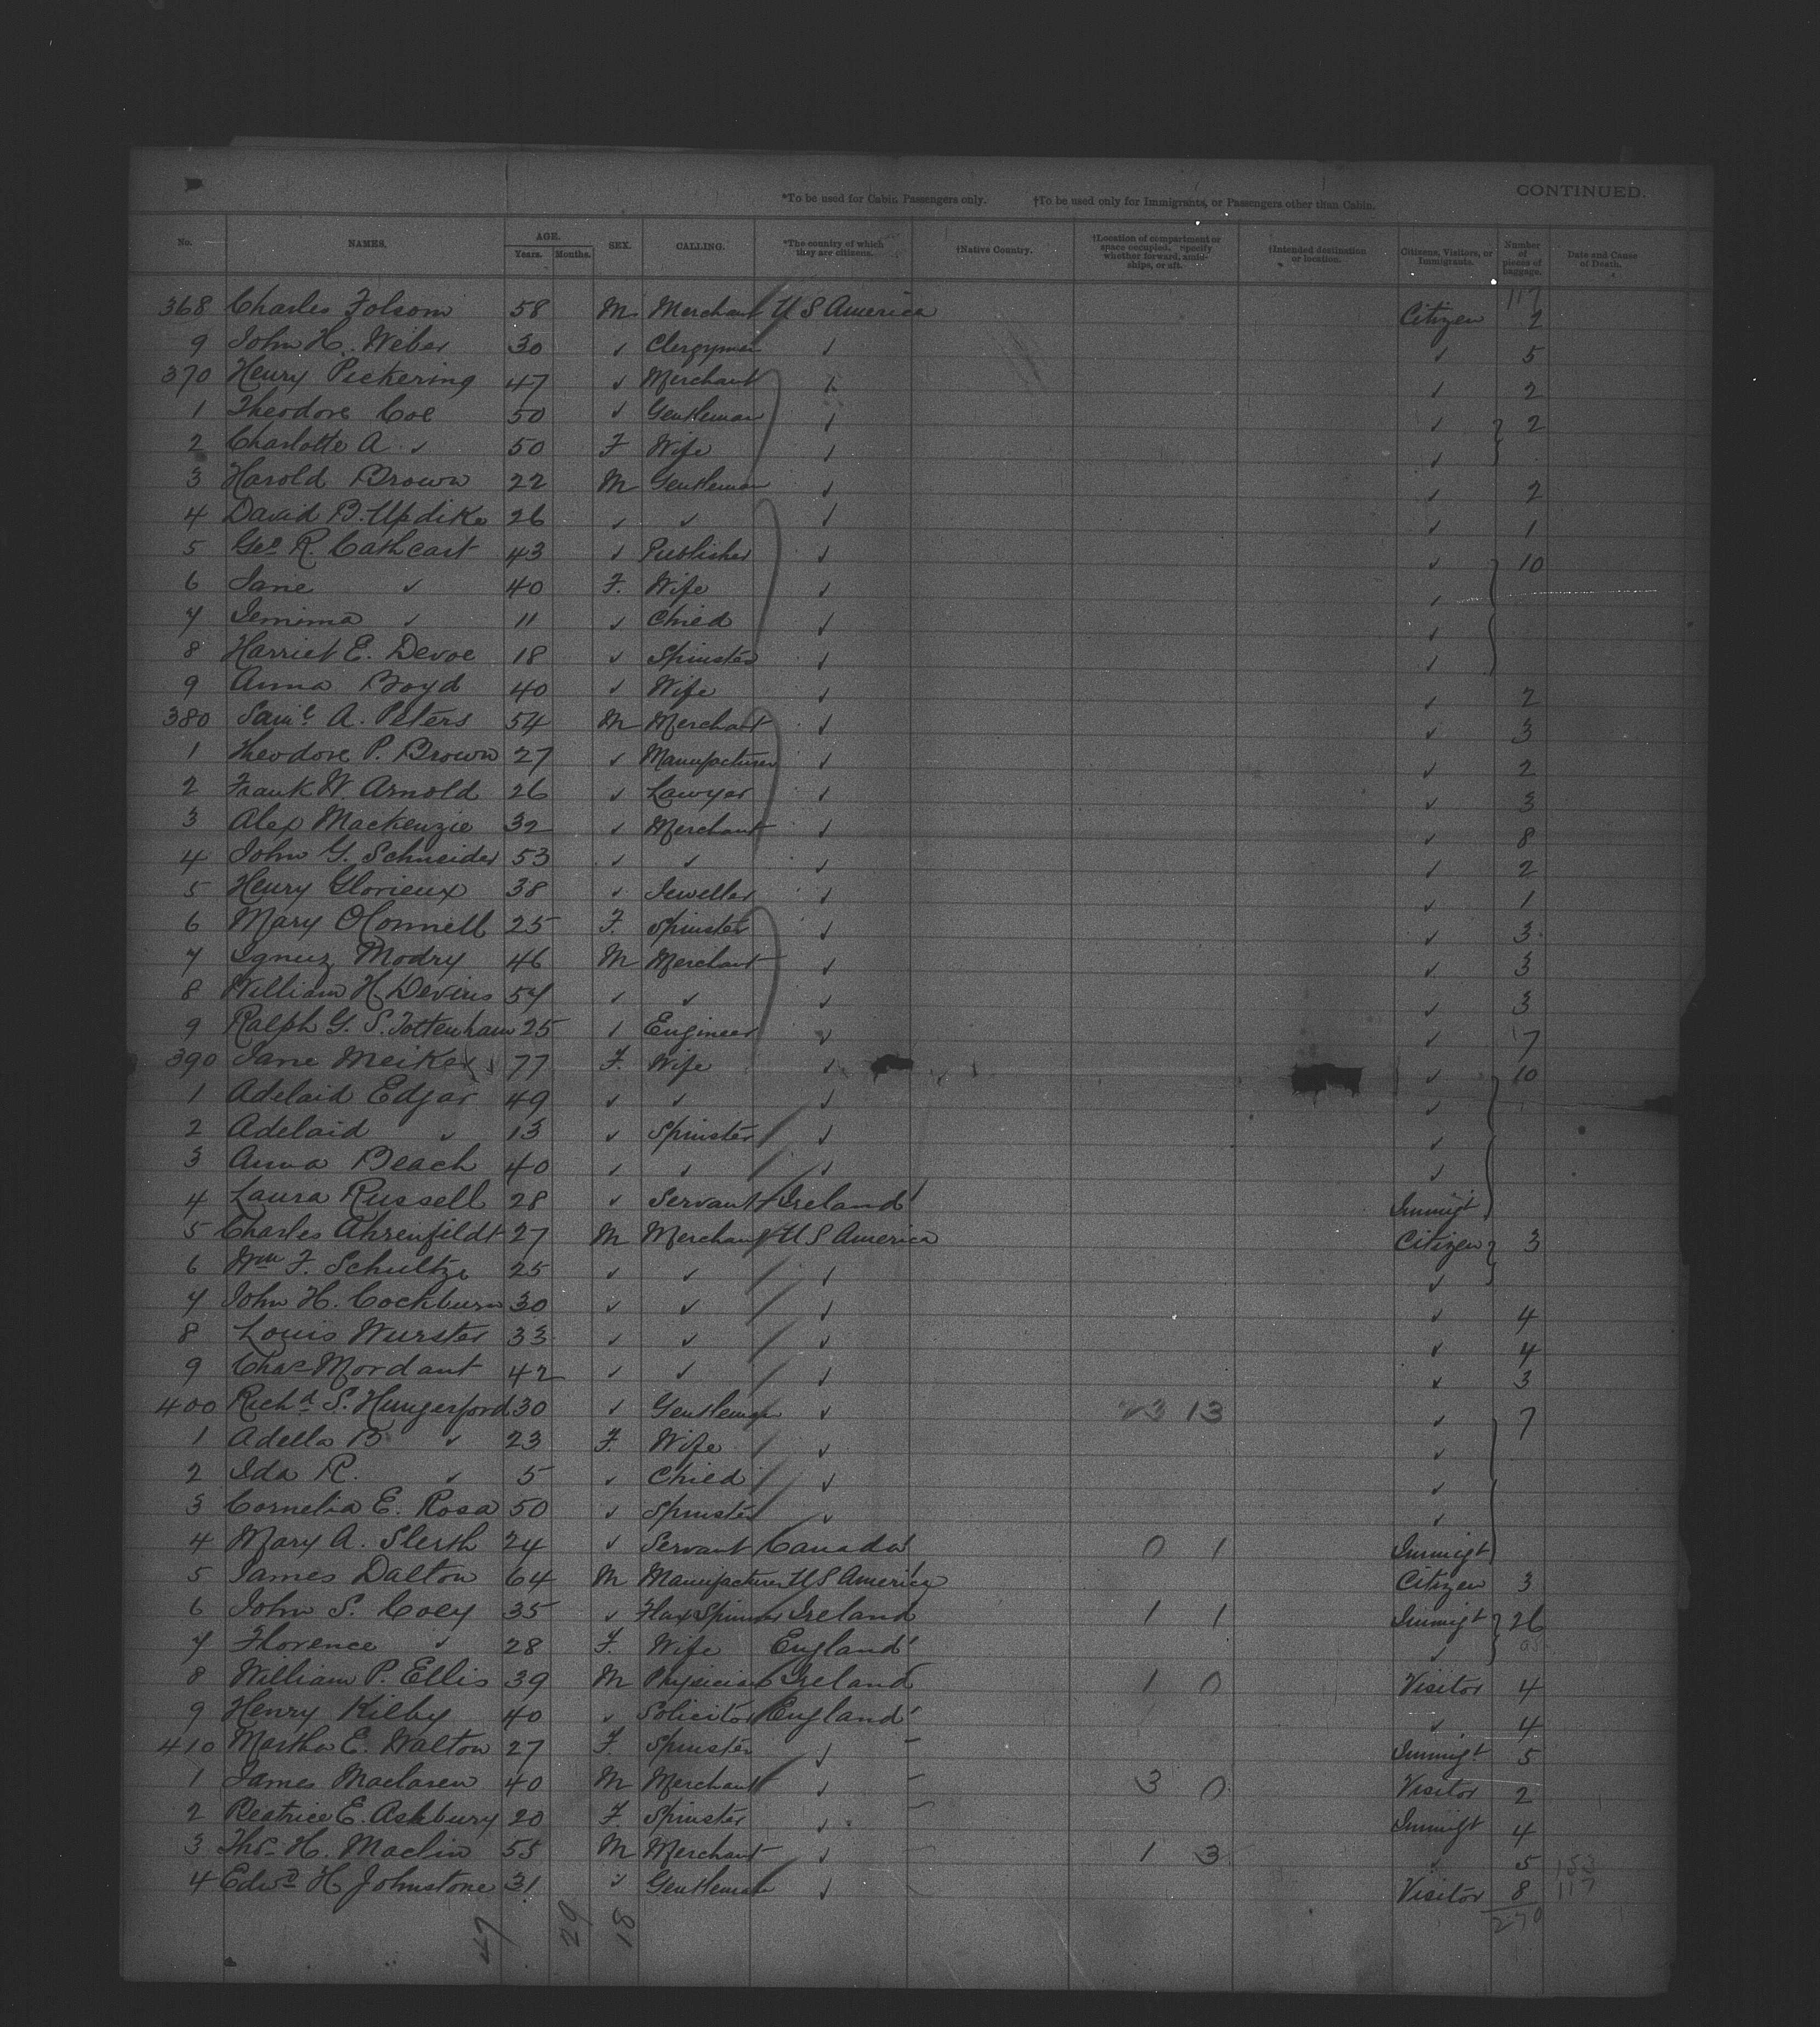 CONTINUED.
*To be used for Cabin Passengers only. †To be used only for Immigrants, or Passengers other than Cabin.
No. NAMES. AGE. Years. Months. SEX. CALLING. *The country of which they are citizens. †Native Country. †Location of compartment or space occupied, specify whether forward, amidships, or aft. †Intended destination or location. Citizens, Visitors, or Immigrants. Number of pieces of baggage. Date and Cause of Death.
117
368 Charles Folsom 58 M Merchant U S America Citizen 2
9 John H. Weber 30 ✓ Clergyman ✓ ✓ 5
370 Henry Pickering 47 ✓ Merchant ✓ ✓ 2
1 Theodore Coe 50 ✓ Gentleman ✓ ✓ 2
2 Charlotte A ✓ 50 F Wife ✓ ✓
3 Harold Brown 22 M Gentleman ✓ ✓ 2
4 David B. Updike 26 ✓ ✓ ✓ ✓ 1
5 Geo R. Cathcart 43 ✓ Publisher ✓ ✓ 10
6 Jane ✓ 40 F. Wife ✓ ✓
7 Jemima ✓ 11 ✓ Child ✓ ✓
8 Harriet E. Devoe 18 ✓ Spinster ✓ ✓
9 Anna Boyd 40 ✓ Wife ✓ ✓ 2
380 Saml A. Peters 54 M Merchant ✓ ✓ 3
1 Theodore P. Brown 27 ✓ Manufacturer ✓ ✓ 2
2 Frank W. Arnold 26 ✓ Lawyer ✓ ✓ 3
3 Alex Mackenzie 32 ✓ Merchant ✓ ✓ 8
4 John G. Schneider 53 ✓ ✓ ✓ ✓ 2
5 Henry Glorieux 38 ✓ Jeweller ✓ ✓ 1
6 Mary OConnell 25 F. Spinster ✓ ✓ 3
7 Ignuz Modry 46 M Merchant ✓ ✓ 3
8 William H Devins 54 ✓ ✓ ✓ ✓ 3
9 Ralph G. S. Tottenham 25 ✓ Engineer ✓ ✓ 7
390 Jane Meiker 77 F. Wife ✓ ✓ 10
1 Adelaid Edgar 49 ✓ ✓ ✓ ✓
2 Adelaid ✓ 13 ✓ Spinster ✓ ✓
3 Anna Beach 40 ✓ ✓ ✓ ✓
4 Laura Russell 28 ✓ Servant Ireland Immigt
5 Charles Ahrenfildt 27 M Merchant U S America Citizen 3
6 Wm F. Schultze 25 ✓ ✓ ✓ ✓
7 John H. Cockburn 30 ✓ ✓ ✓ ✓ 4
8 Louis Wurster 33 ✓ ✓ ✓ ✓ 4
9 Chas Mordant 42 ✓ ✓ ✓ ✓ 3
400 Richd S. Hungerford 30 ✓ Gentleman ✓ 13 ✓ 7
1 Adella B ✓ 23 F. Wife ✓ ✓
2 Ida R. ✓ 5 ✓ Child ✓ ✓
3 Cornelia E. Rosa 50 ✓ Spinster ✓ ✓
4 Mary A. Slerth 24 ✓ Servant Canada 0 1 Immigt
5 James Dalton 64 M Manufacturer U S America Citizen 3
6 John S. Coey 35 ✓ Flax Spinner Ireland 1 1 Immigt 26
7 Florence ✓ 28 F. Wife England ✓
8 William P. Ellis 39 M Physician Ireland 1 0 Visitor 4
9 Henry Kilby 40 ✓ Solicitor England ✓ 4
410 Martha E. Walton 27 F. Spinster ✓ Immigt 5
1 James Maclaren 40 M Merchant ✓ 3 0 Visitor 2
2 Beatrice E. Ashbury 20 F Spinster ✓ Immigt 4
3 Thos H. Maclin 55 M Merchant ✓ 1 3 ✓ 5 153
4 Edwd H Johnstone 31 ✓ Gentleman ✓ Visitor 8 117
270
47 29 18